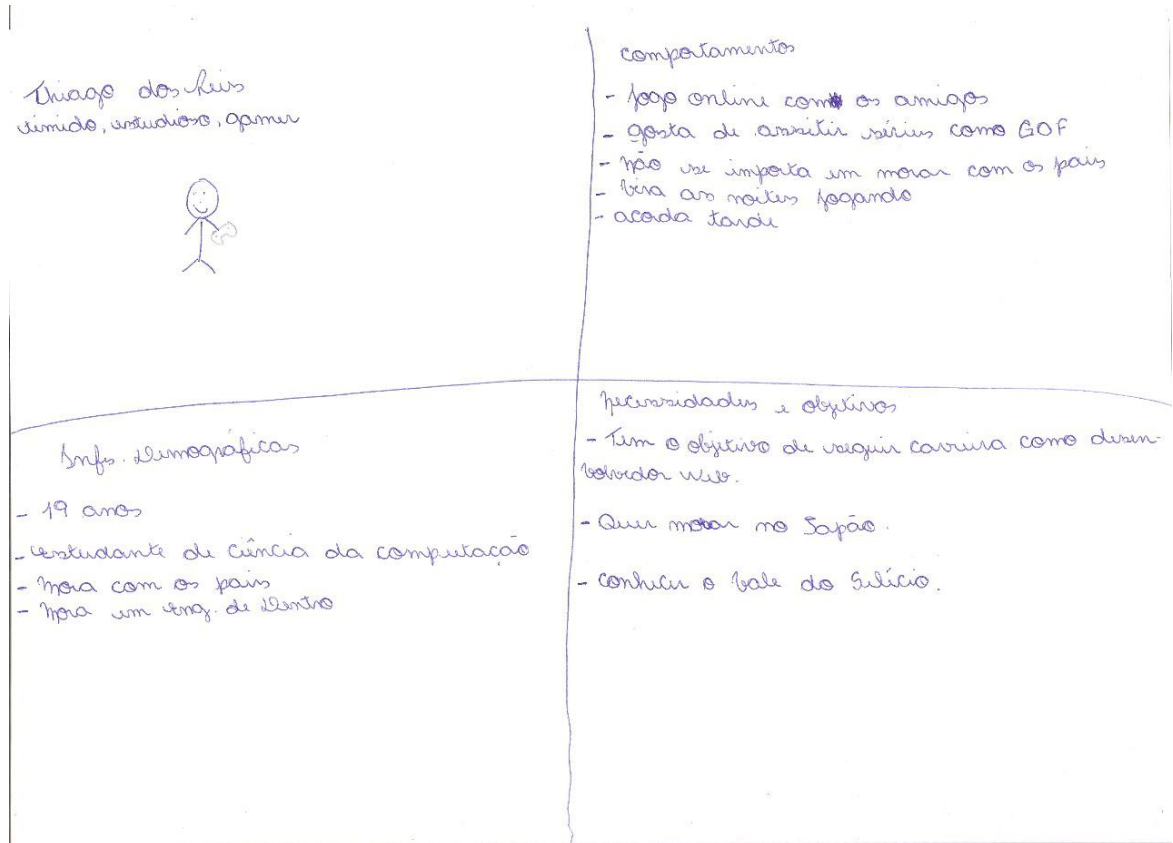 Thiago dos Reis
tímido, estudioso, gamer
comportamentos
- Jogo online com os amigos
- gosta de assitir séries como GOF
- não se importa em morar com os pais
- Vira as noites jogando
- acorda tarde
Infs. Demográficas
- 19 anos
- estudante de Ciência da computação
- Mora com os pais
- Mora em Eng. de Dentro
Necessidades e objetivos
- Tem o objetivo de seguir carreira como desen-
volvedor web.
- Quer morar no Japão.
- conhecer o Vale do Silício.